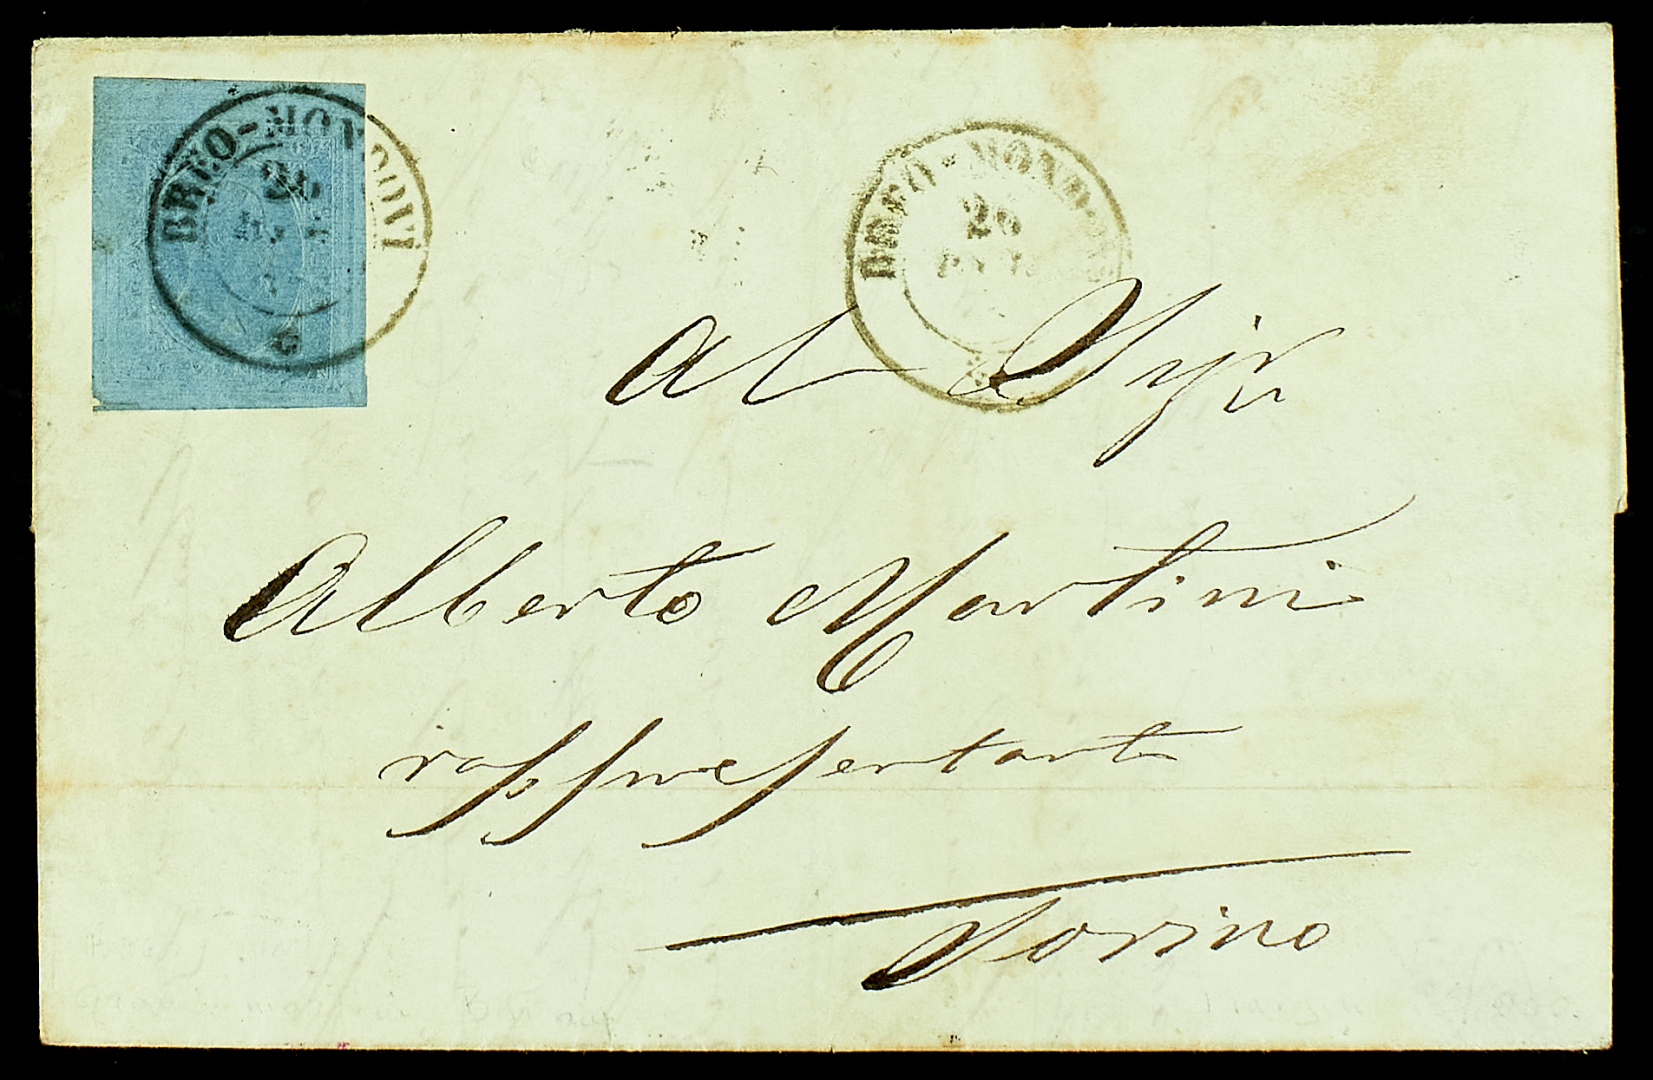 BREO-MONDOVI
26
BREO-MONDOVI
26
Al Sigr
Alberto Martini
rappresentante
Torino